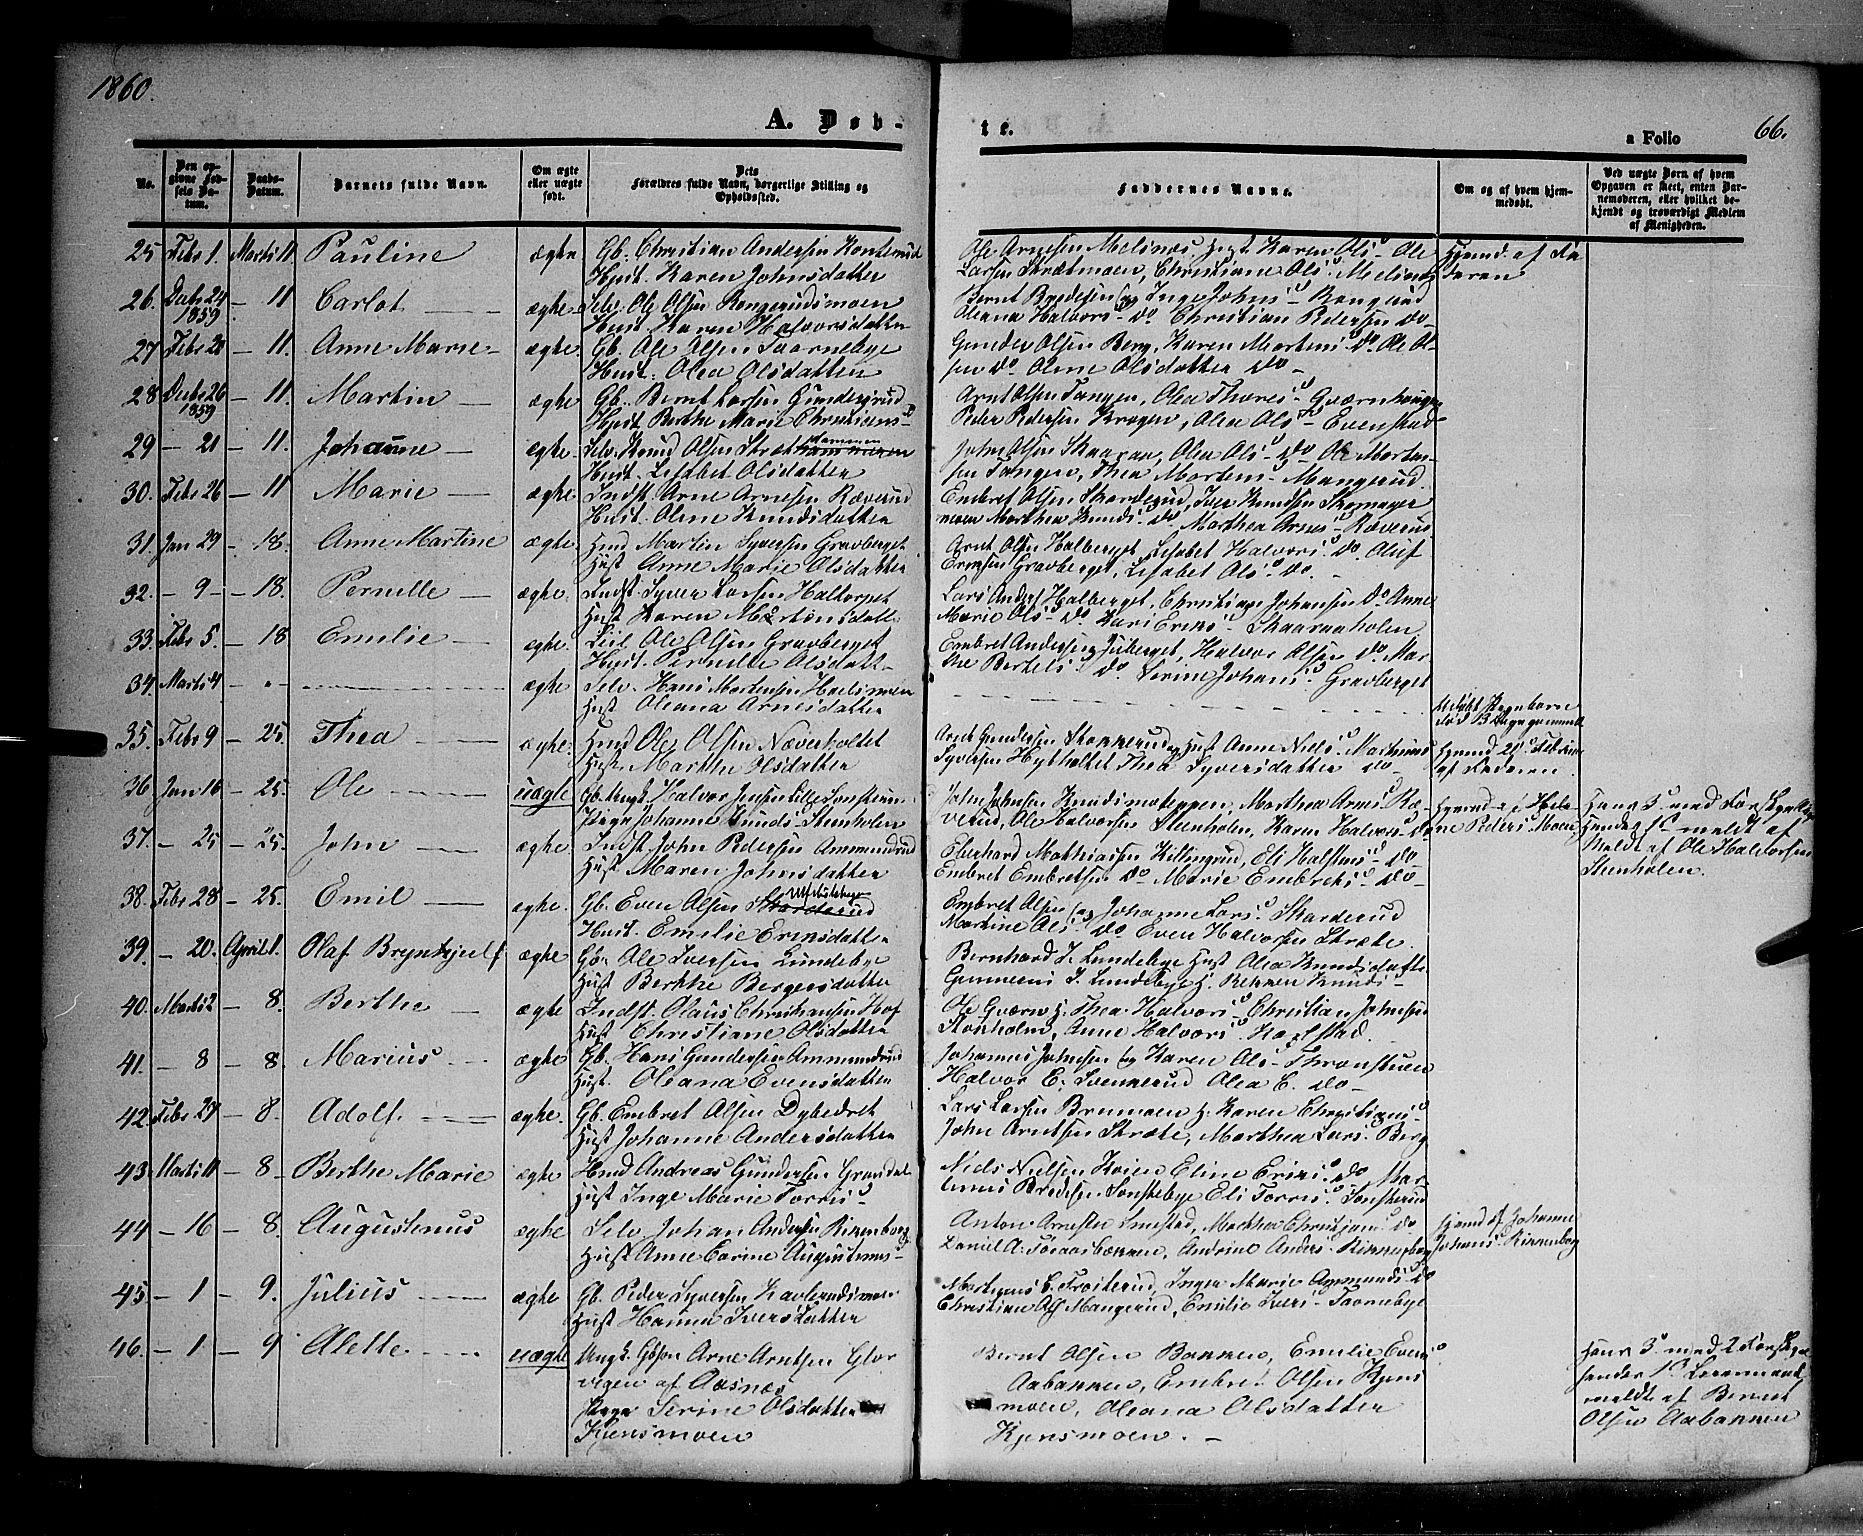 1860.
A. Døb-
te.
a Folio
66.
No.
Den op-
givne Fød-
sels Da-
tum.
Daabs-
Datum.
Barnets fulde Navn.
Om ægte
eller uægte
født.
Dets
Forældres fulde Navn, borgerlige Stilling og
Opholdssted.
Faddernes Navne.
Om og af hvem hjem-
medøbt.
Ved uægte Børn af hvem
Opgaven er skeet, enten Bar-
nemoderen, eller hvilket be-
kjendt og troværdigt Medlem
af Menigheden.
25 Febr 1. Marts 11 Pauline ægte Gb. Christian Andersen
Hust. Karen Johnsdatter
Ole Arnesen Melnæs Hust. Karen Ols- Ole
Larsen Strætmoen, Christiane Ols
Hjemd. af Fa
deren
26. Decbr 24 1859 - 11 Carlot ægte Selv. Ole Olsen Rongerudsmoen
Hust. Karen Halvorsdatter
Bernt Bredesen og Inge Johns- Rongerud
Oleana Halvors- do Christian Pedersen do
27 Febr 20 - 11. Anne Marie ægte. Gb. Ole Olsen Taarnebye
Hust. Olea Olsdatter
Gunder Olsen Berg, Karen Mortens do Ole Ol-
sen do Oline Olsdatter do
28 Decbr 26 1859 - 11. Martin ægte Gb. Bernt Larsen Gundersrud
Hust. Berthe Marie Christians
Arnt Olsen Tangen, Olea Thores-
Peder Pedersen Krogen, Olea Ols- Evenstad
29 - 21 - 11. Johanne ægte. Selv. Knud Olsen
Hust. Lisabet Olsdatter
John Olsen Skaaran, Olea Ols- do Ole Morten-
sen Tangen, Thea Mortens- Mangerud
30. Febr 26 - 11 Marie ægte Indst. Arne Arnesen Røverud
Hust. Oline Knudsdatter
Embret Olsen Skarderud, Iver Knudsen Skomager
moen Marthea Knuds- do Marthea Arnes- Røverud
31. Jan 29 - 18. Anne Martine ægte Hmd Martin Syversen Gravberget
Hust Anne Marie Olsdatter
Arnt Olsen Halberget, Lisabet Halvors- do Oluf
Eriksen Gravberget, Lisabet Ols- do.
32. - 9 - 18. Pernille ægte. Indst. Syver Larsen
Hust Karen Mortensdatt
Lars Anders Halberget, Christian Johansen do Anne
Marie Ols- do Kari Eriks- Skaaraaholen
33. Febr 5. - 18 Emilie ægte. Ole Olsen Gravberget
Hust. Pernille Olsdatt
Embret Andersen Juberget, Halvor Olsen do Mar-
the Bertels do Serine Johans- Gravberget
34. Marts 4 - " - ægte Selv. Hans Mortensen
Hust Oleana Arnesdatter
Udøbt
død
35. Febr 9 - 25. Thea ægte. Hmd Ole Olsen Næverholtet
Hust. Marthe Olsdatter
Arnt Gundersen Stokkerud, Hust Anne Niels
Syversen Hytholtet Thea Syversdatter do
Hjemd 20 Februar
af Faderen.
36 Jan 16 - 25. Ole uægte Gb. Ungk. Halvor Jensen
Pige Johanne Knuds- Steenholen
John Johnsen Knudsmoteppen, Marthea Arnes- Rø-
verud, Ole Halvorsen Steenholen, Karen Halvors- do
ne Peders- Moen
Hans 3 med
Hendes 1ste meldt af
Meldt af Ole Halvorsen
Steenholen.
37. - 25 - 25. John ægte. Indst John Pedersen Ammundrud
Hust Maren Johnsdatter
Eberhard Mathiassen Killingrud, Eli Halstens- do
Embret Embretsen do Marie Embrets- do
38. Febr 28 - 25. Emil ægte. Gb. Even Olsen Skarderud
Hust. Emilie Eriksdatter
Embret Olsen og Johanne Lars- Skarderud
Martine Ols- do Even Halvorsen Stræte.
39. - 20. April 1. Olaf Brynhjulf ægte Gb. Ole Iversen Lundebye
Hust Berthe Bergersdatter
Bernhard I. Lundebye Hust Olea Knudsdatter
I. Lundebye H. Knuds-
40. Marts 2 - 8. Berthe ægte Indst. Olaus Christiansen Hof
Hust Christiane Olsdatter
Ole Gværn H. Thea Halvors- Christian Johnsen
Stenholm, Anne Halvors-
41. - 8 - 8. Marius ægte Gb. Hans Gundersen Ammundrud
Hust. Oleana Evensdatter
Johannes Johnsen og Karen Ols- Thronstuen
Halvor E. Svennerud Olea E. do
42. Febr 29 - 8. Adolf ægte. Gb. Embret Olsen Dybedret
Hust Johanne Andersdatter
Lars Larsen Brunmoen H. Karen Christians-
John Arntsen Stræte, Marthea Lars- Berg
43. Marts 11 - 8. Berthe Marie ægte Hmd Andreas Gundersen
Hust Inge Marie Torris-
Niels Nielsen Kvien Eline Eriks- do Mar-
tinus Bredesen Sonstebye Eli Torris- Sonsterud
44 - 16 - 8. Augustenus ægte Selv Johan Andersen Rikkenberg
Hust Anne Carine Augustinus-
Anton Arnesen Smestad, Marthea Christians- do
Daniel A. Andrine Anders- Rikkenberg
Hjemd af Johanne
Johans Rikkenberg
45 - 1 - 9. Julius ægte Gb. Peder Syversen
Hust Hanna Iversdatter
Martinus E. Troiterud, Inger Marie Ammunds- do
Christian Ols Mangerud, Emilie Ivers- Taarnebye
46. - 1 - 9 Alette uægte Ungk. Arne Arntsen Glor
vigen af Aasnæs
Pige Serine Olsdatter
Kjensmoen
Bernt Olsen Bakken, Emilie Evens
Aabakken, Embret Olsen Kjens
moen, Oleana Olsdatter
Kjensmoen.
Hans 3 med 2
hendes 1ste
meldte af Bernt
Olsen Aabakken